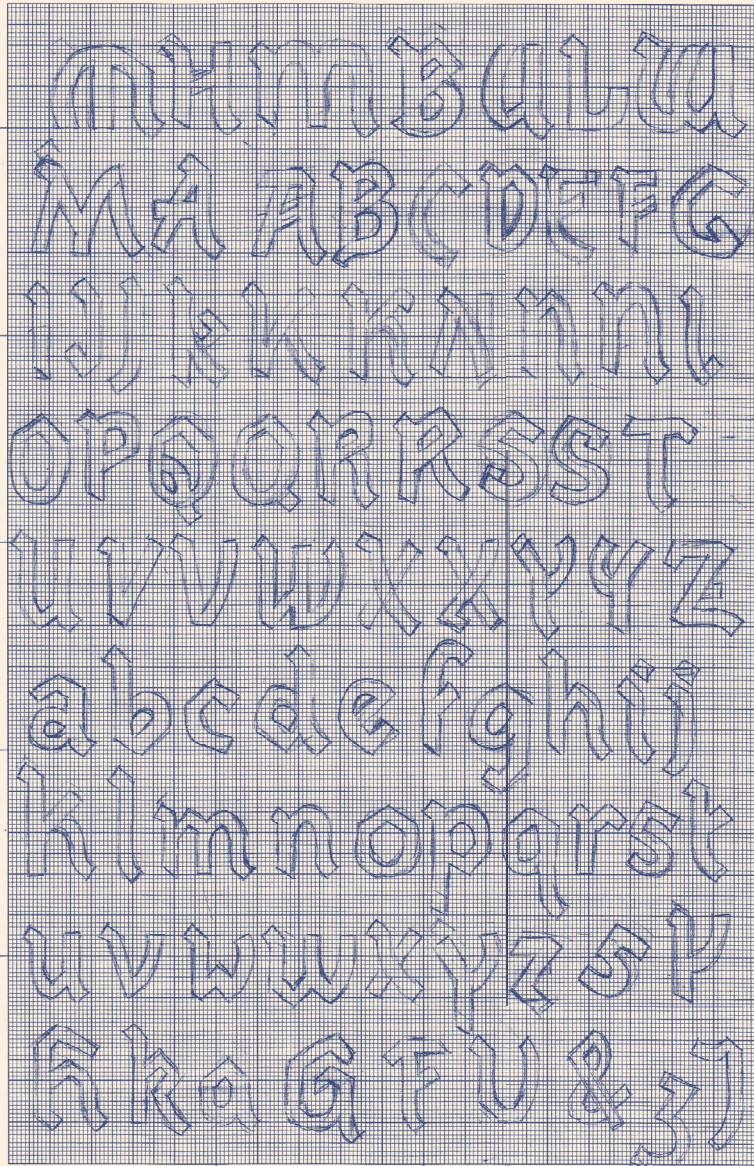 m H m B U L W
M A A B C D E F G
I J J k K K Λ n n l
O P Q Q R R S S T
U V V W X X Y Y Z
a b c d e f g h i j
k l m n o p q r s t
u v w w x y z s y
h k a G F U & 3 1